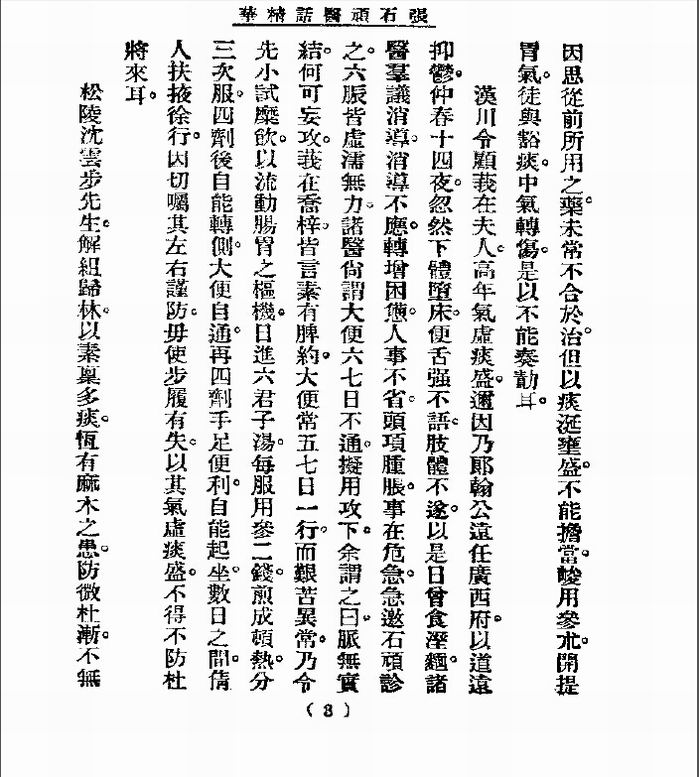 張石頑醫話精華
因思從前所用之藥。未常不合於治。但以痰涎壅盛。不能擔當。峻用參朮。開提
胃氣。徒與豁痰。中氣轉傷。是以不能奏勣耳。
漢川令顧莪在夫人。高年氣虛痰盛。邇因乃郎翰公遠任廣西府。以道遠
抑鬱。仲春十四夜。忽然下體墮床。便舌强不語。肢體不遂。以是日曾食溼麵。諸
醫羣議消導。消導不應。轉增困憊。人事不省。頭項腫脹。事在危急。急邀石頑診
之。六脈皆虛濡無力。諸醫尙謂大便六七日不通。擬用攻下。余謂之曰。脈無實
結。何可妄攻。莪在喬梓。皆言素有脾約。大便常五七日一行。而艱苦異常。乃令
先小試糜飲。以流動腸胃之樞機。日進六君子湯。每服用參二錢。煎成頓熱。分
三次服。四劑後自能轉側。大便自通。再四劑手足便利。自能起坐。數日之間。倩
人扶掖徐行。因切囑其左右謹防。毋使步履有失。以其氣虛痰盛。不得不防杜
將來耳。
松陵沈雲步先生。解組歸林。以素稟多痰。恆有麻木之患。防微杜漸。不無
( 3 )